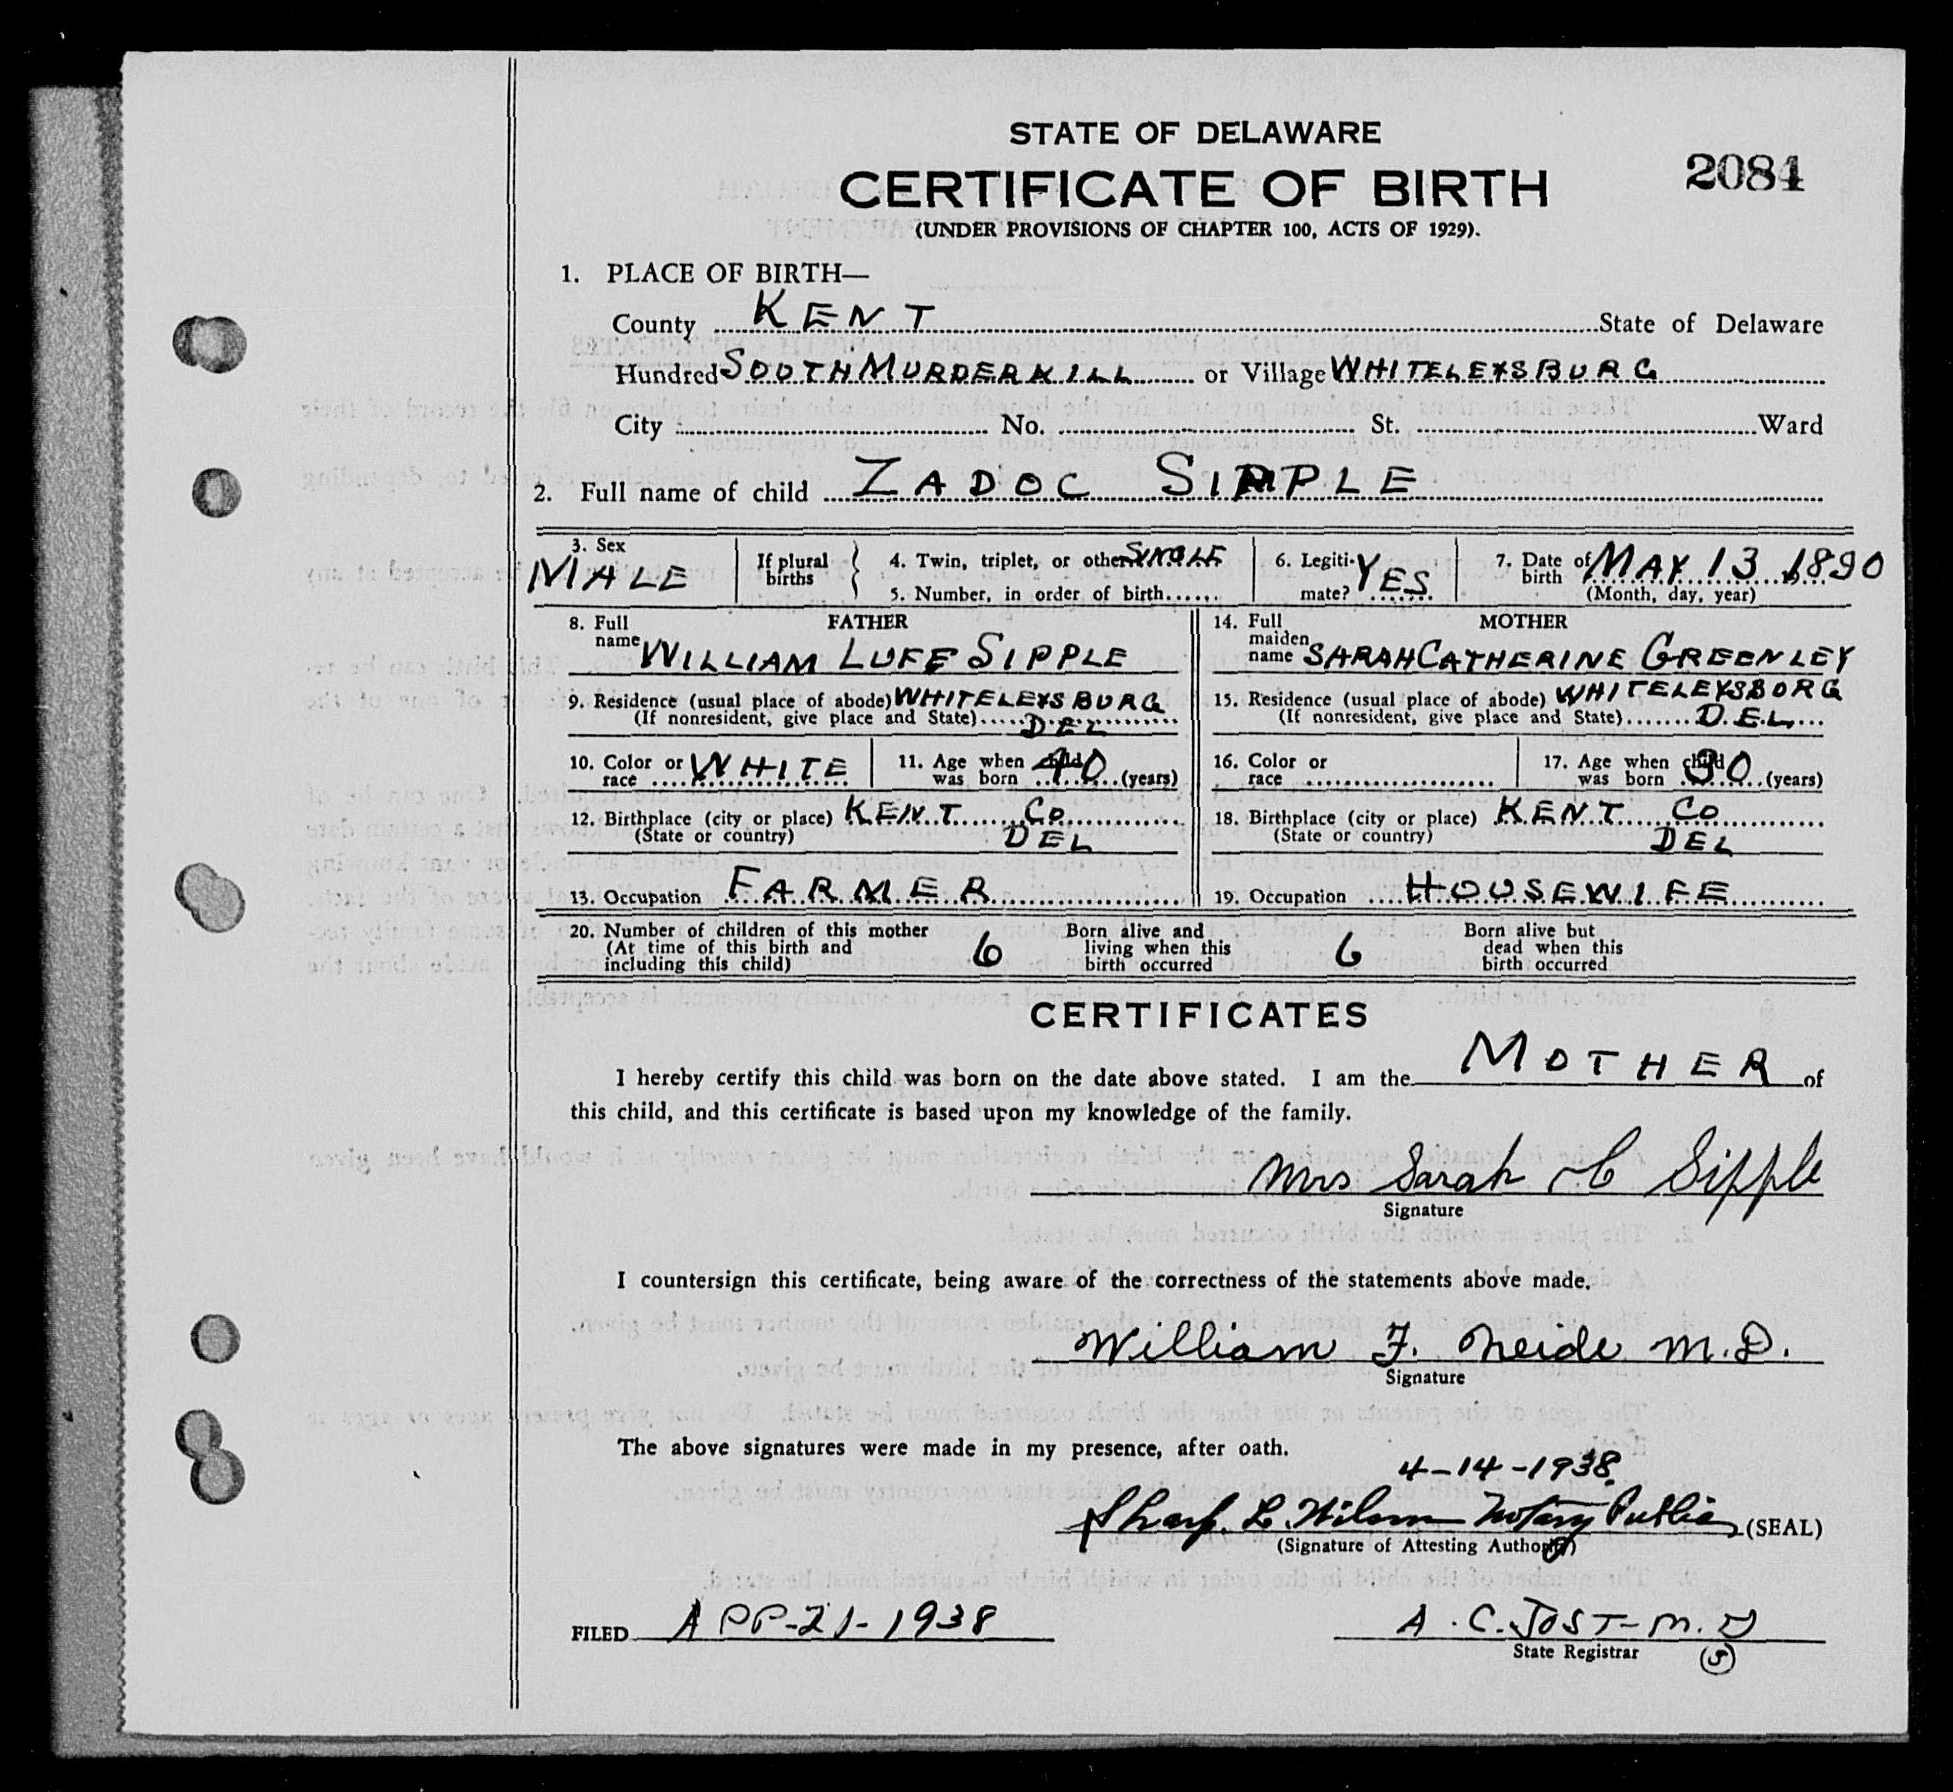 STATE OF DELAWARE
CERTIFICATE OF BIRTH
2084
(UNDER PROVISIONS OF CHAPTER 100, ACTS OF 1929).
1. PLACE OF BIRTH—
County KENT State of Delaware
Hundred SOUTH MURDERKILL or Village WHITELEYSBURG
City No. St. Ward
2. Full name of child ZADOC SIPPLE
3. Sex MALE
If plural births
4. Twin, triplet, or other SINGLE
5. Number, in order of birth
6. Legitimate? YES
7. Date of birth MAY 13, 1890
(Month, day, year)
FATHER
8. Full name WILLIAM LUFF SIPPLE
9. Residence (usual place of abode) WHITELEYSBURG
(If nonresident, give place and State) DEL
10. Color or race WHITE
11. Age when child was born 40 (years)
12. Birthplace (city or place) KENT CO
(State or country) DEL
13. Occupation FARMER
MOTHER
14. Full maiden name SARAH CATHERINE GREENLEY
15. Residence (usual place of abode) WHITELEYSBURG
(If nonresident, give place and State) DEL
16. Color or race
17. Age when child was born 30 (years)
18. Birthplace (city or place) KENT CO
(State or country) DEL
19. Occupation HOUSEWIFE
20. Number of children of this mother
(At time of this birth and
including this child)
6
Born alive and
living when this
birth occurred
6
Born alive but
dead when this
birth occurred
CERTIFICATES
I hereby certify this child was born on the date above stated. I am the MOTHER of
this child, and this certificate is based upon my knowledge of the family.
Mrs Sarah C Sipple
Signature
I countersign this certificate, being aware of the correctness of the statements above made.
William F. Neide M.D.
Signature
The above signatures were made in my presence, after oath.
4-14-1938
Sharp. L. Wilson Notary Public (SEAL)
(Signature of Attesting Authority)
FILED APR-21-1938
A. C. JOST-M.D
State Registrar